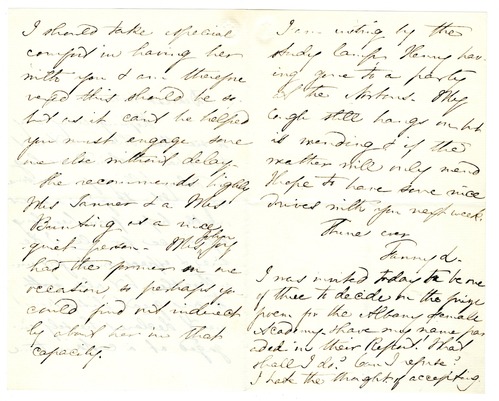 I should take especial
comfort in having her
with you & am therefore
vexed this should be so.
but as it can't be helped
you must engage some
one else without delay.
She recommends highly
Mrs Tanner & a Mrs
Bunting as a nice
quiet person. Mrs John
had the former on one
occasion so perhaps you
could find out indirect
ly about her in that
capacity.
I am writing by the
study lamp, Henry hav-
ing gone to a party
at the Nortons. My
cough still hangs on but
is mending & if the
weather will only mend
I hope to have some nice
drives with you next week.
Thine ever
Fanny L.
I was invited today to be one
of three to decide on the prize
poem for the Albany female
Academy & have my name par
aded in their Report! What
shall I do? Can I refuse?
I hate the thought of accepting